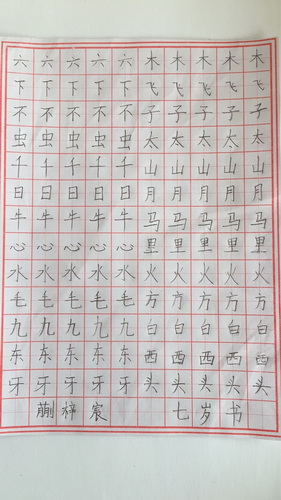 六六六六六木木木木木
下下下下下飞飞飞飞飞
不不不不不子子子子子
虫虫虫虫虫太太太太太
千千千千千山山山山山
日日日日日月月月月月
牛牛牛牛牛马马马马马
心心心心心里里里里里
水水水水水火火火火火
毛毛毛毛毛方方方方方
九九九九九白白白白白
东东东东东西西西西西
牙牙牙牙牙头头头头头
蒯梓宸 七岁书